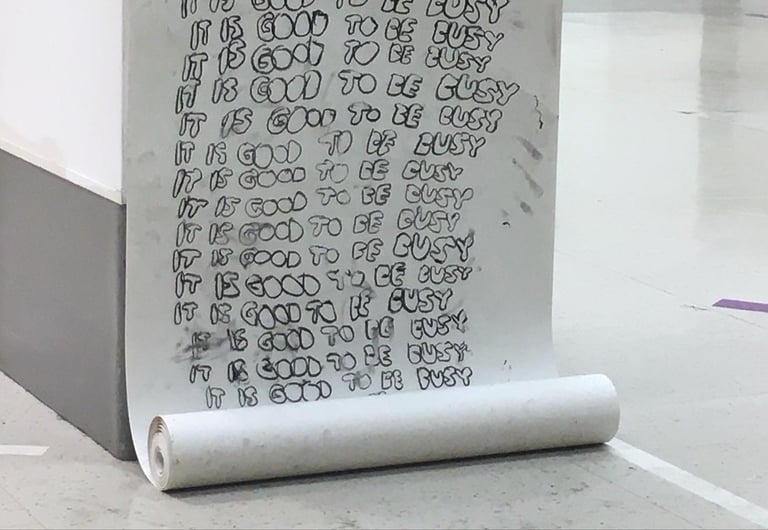 IT IS GOOD TO BE BUSY
IT IS GOOD TO BE BUSY
IT IS GOOD TO BE BUSY
IT IS GOOD TO BE BUSY
IT IS GOOD TO BE BUSY
IT IS GOOD TO BE BUSY
IT IS GOOD TO BE BUSY
IT IS GOOD TO BE BUSY
IT IS GOOD TO BE BUSY
IT IS GOOD TO BE BUSY
IT IS GOOD TO BE BUSY
IT IS GOOD TO BE BUSY
IT IS GOOD TO BE BUSY
IT IS GOOD TO BE BUSY
IT IS GOOD TO BE BUSY